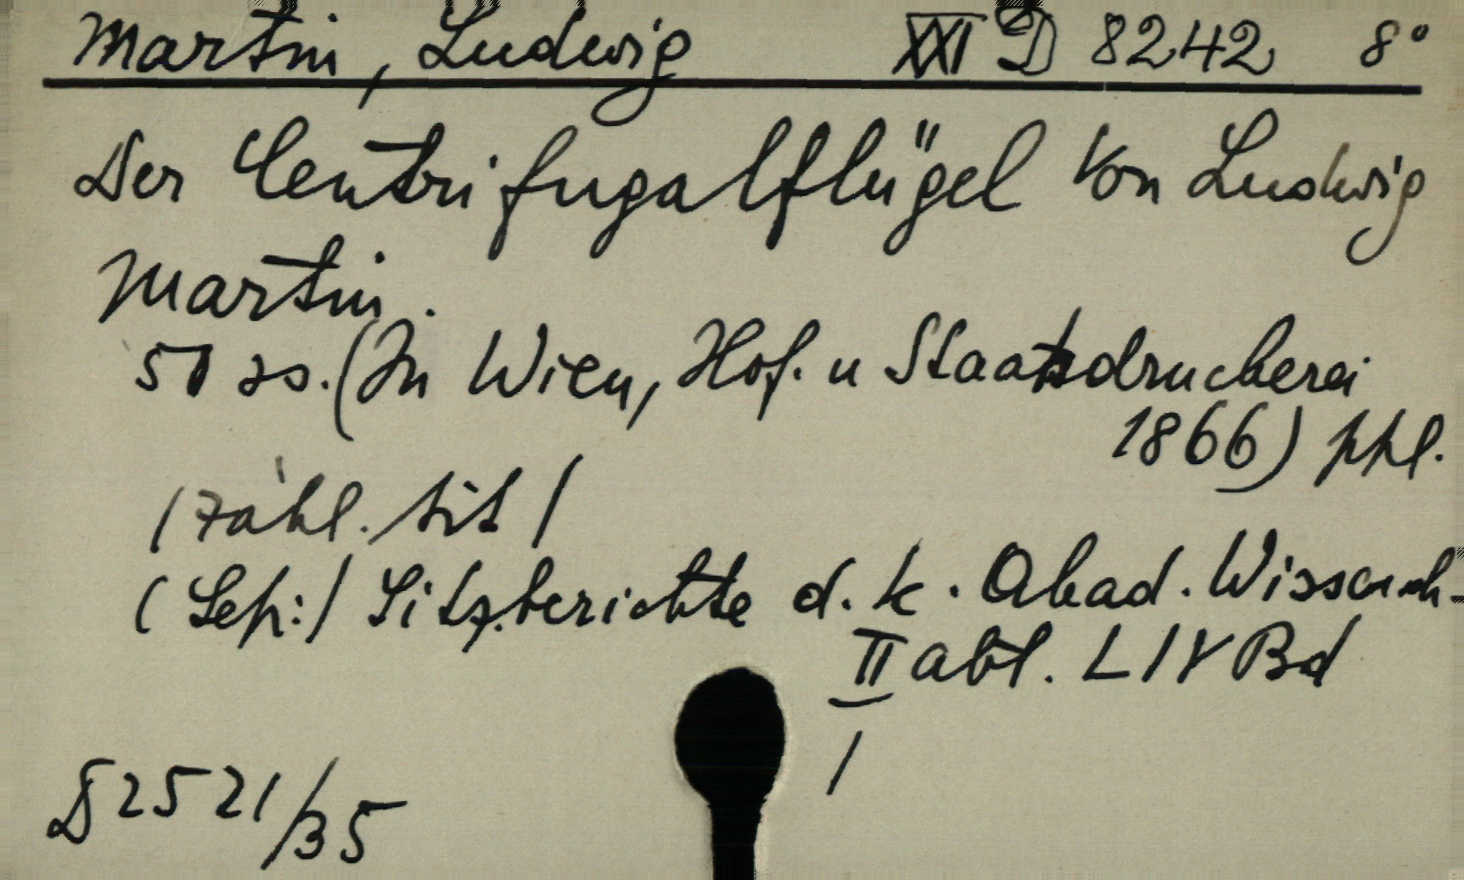 Martin, Ludwig XXI D 8242 8°
Der Centrifugalflügel Von Ludwig
Martin.
(In Wien, Hof. u Staatsdruckerei
1866) ppl.
/zähl. tit/
(Sep:/ Sitzberichte d. k. Akad. Wissensch-
II abt. LIV Bd
/
D 2521/35